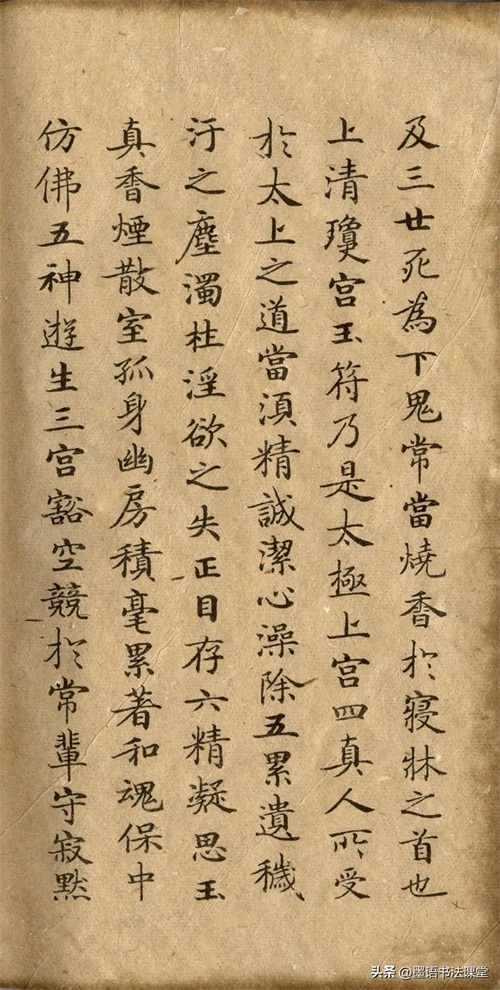 及三世死為下鬼常當燒香於寢牀之首也
上清瓊宮玉符乃是太極上宮四真人所受
於太上之道當須精誠潔心澡除五累遺穢
汙之塵濁杜淫欲之失正目存六精凝思玉
真香煙散室孤身幽房積毫累著和魂保中
仿佛五神遊生三宮豁空競於常輩守寂默
头条 @墨语书法课堂